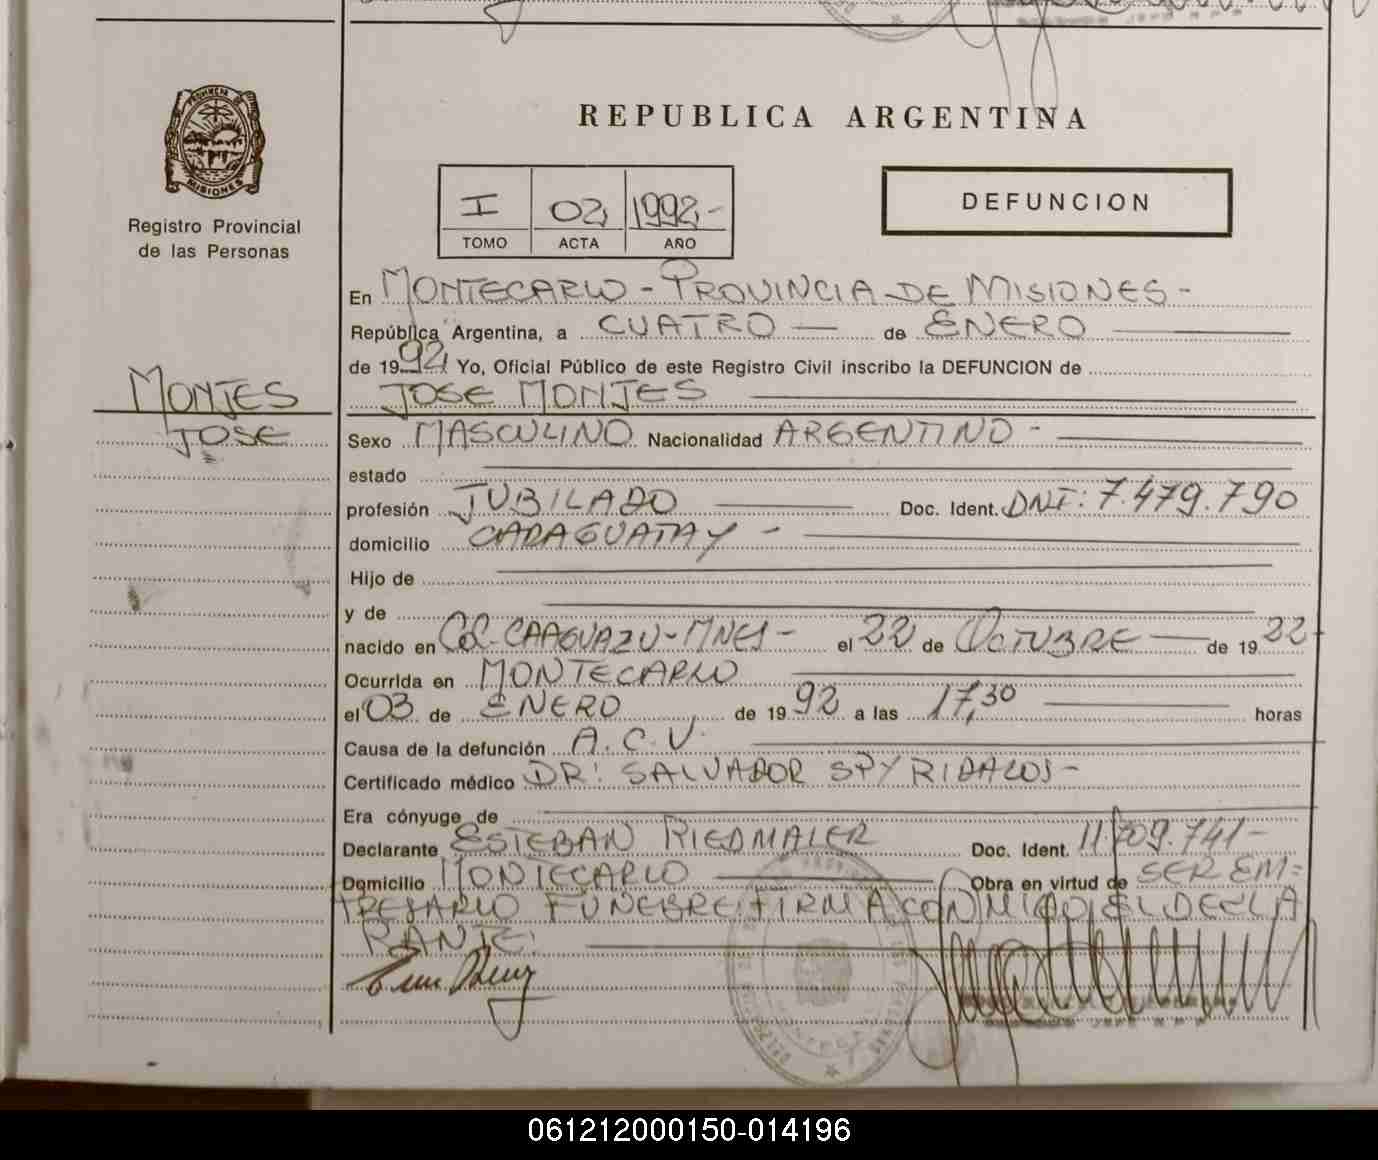 REPUBLICA ARGENTINA
PROVINCIA DE
MISIONES
Registro Provincial
de las Personas
I 02 1992-
TOMO ACTA AÑO
DEFUNCION
En MONTECARLO - PROVINCIA DE MISIONES -
República Argentina, a CUATRO — de ENERO
de 1992 Yo, Oficial Público de este Registro Civil inscribo la DEFUNCION de
JOSE MONJES
MONJES
JOSE
Sexo MASCULINO Nacionalidad ARGENTINO -
estado
profesión JUBILADO Doc. Ident. DNI: 7.479.790
domicilio CARAGUATAY -
Hijo de
y de
nacido en COL. CAAGUAZU - MNES - el 22 de OCTUBRE — de 1922
Ocurrida en MONTECARLO
el 03 de ENERO de 1992 a las 17,30 horas
Causa de la defunción A.C.V.
Certificado médico DR: SALVADOR SPYRIDALOS -
Era cónyuge de
Declarante ESTEBAN RIEDMALER Doc. Ident. 11.709.741-
Domicilio MONTECARLO Obra en virtud de SER EM=
PRESARIO FUNEBRE: FIRMA CONMIGO EL DECLA
RANTE:
061212000150-014196